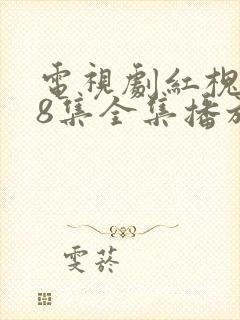 電視劇紅槐
8集全集播放
雯菸